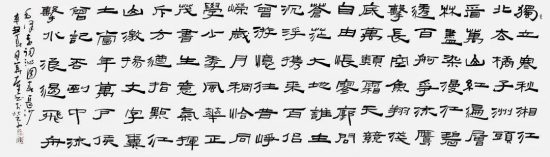 獨立寒秋湘江
北去橘子洲頭
看萬山紅遍層
林盡染漫江碧
透百舸爭流鷹
擊長空魚翔淺
底萬類霜天競
自由悵寥廓問
蒼茫大地誰主
沉浮攜來百侶
曾游憶往昔崢
嶸歲月稠恰同
學少年風華正
茂書生意氣揮
斥方遒指點江
山激揚文字糞
土當年萬戶侯
曾記否到中流
擊水浪遏飛舟
毛澤東詞沁園春長沙